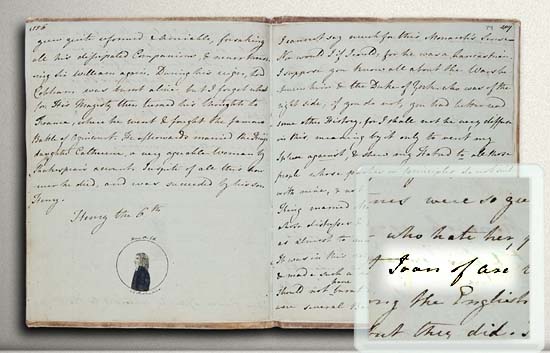 grew quite reformed & amiable, forsaking
all his dissipated Companions, & never thrash
-ing Sir William again. During his reign, Lord
Cobham was burnt alive, but I forget what
for. His Majesty then turned his thoughts to
France, where he went & fought the famous
Battle of Agincourt. He afterwards married the King's
daughter Catherine, a very agreable Woman by
Shakespear's account. In spite of all this how
-ever he died, and was succeeded by his son
Henry.
Henry the 6th
I cannot say much for this Monarch's Sense-
Nor would I if I could, for he was a Lancastrian.
I suppose you know all about the Wars be
tween him & the Duke of York who was of the
right side; if you do not, you had better read
some other History, for I shall not be very diffuse
in this, meaning by it only to vent my
Spleen against, & shew my Hatred to all those
people whose parties or principles do not suit
with mine, &
King married
whose distresses
as almost to
It was in this
& made such a
should not have burnt
were several
tunes were so gre
who hate her, p
Joan of arc
ong the English
but they did. s